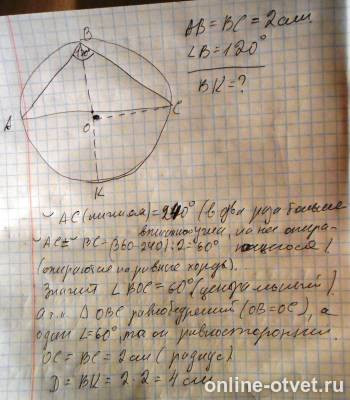 AB = BC = 2см
∠B = 120°
BK = ?
B
120°
A
C
O
K
◡ AC (нижняя) = 240° (в два раза больше
вписанного угла, на неё опира-
◡ BC = (360 - 240) : 2 = 60°
(опираются на равные хорды).
Значит ∠ BOC = 60° (центральный).
а т.к. Δ OBC равнобедренный (OB = OC), а
один ∠ = 60°, то он равносторонний.
OC = BC = 2см (радиус)
D = BK = 2·2 = 4 см
online-otvet.ru